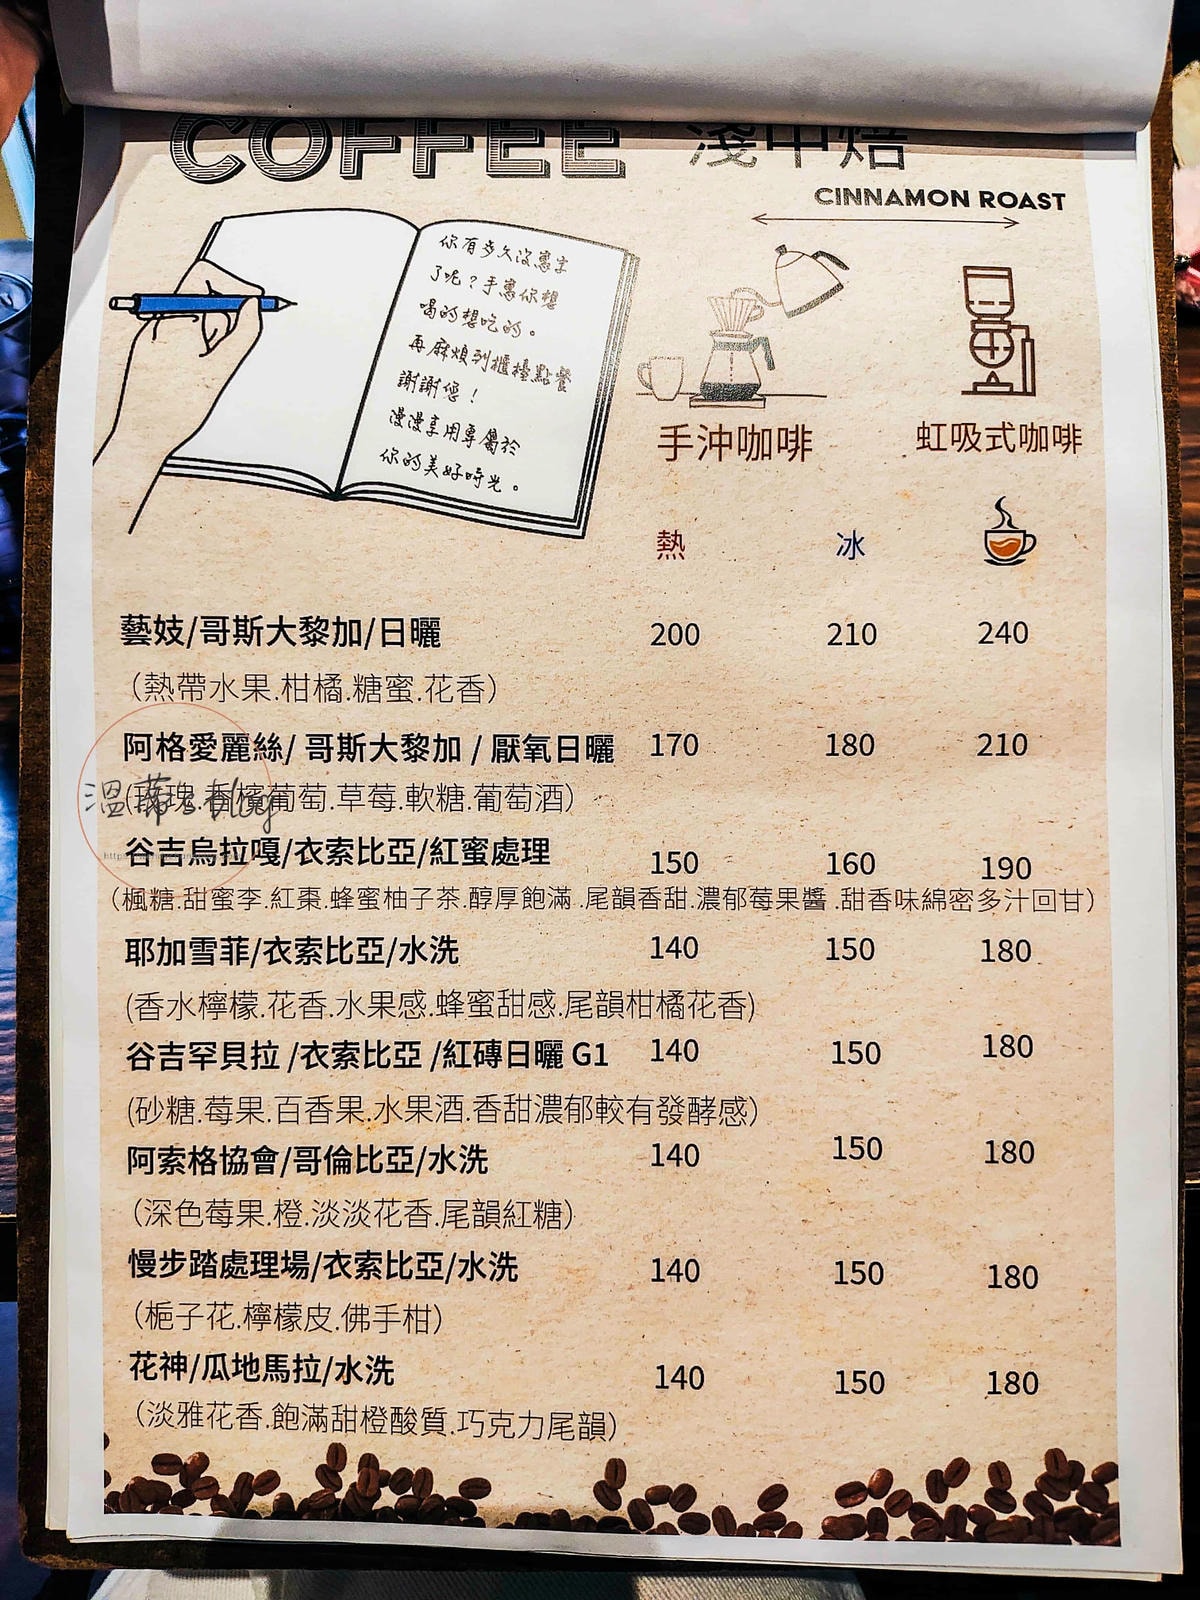 COFFEE 淺中焙
CINNAMON ROAST
你有多久沒專享
了呢？手寫你想
喝的想吃的。
再麻煩到櫃檯點餐
謝謝您！
漫漫享用專屬於
你的美好時光。
手沖咖啡 虹吸式咖啡
熱 冰
藝妓/哥斯大黎加/日曬 200 210 240
（熱帶水果.柑橘.糖蜜.花香）
阿格愛麗絲/ 哥斯大黎加 / 厭氧日曬 170 180 210
(玫瑰.香檳葡萄.草莓.軟糖.葡萄酒）
溫蒂's blog
谷吉烏拉嘎/衣索比亞/紅蜜處理 150 160 190
（楓糖.甜蜜李.紅棗.蜂蜜柚子茶.醇厚飽滿 .尾韻香甜.濃郁莓果醬 .甜香味綿密多汁回甘）
耶加雪菲/衣索比亞/水洗 140 150 180
(香水檸檬.花香.水果感.蜂蜜甜感.尾韻柑橘花香)
谷吉罕貝拉 /衣索比亞 /紅磚日曬 G1 140 150 180
(砂糖.莓果.百香果.水果酒.香甜濃郁較有發酵感）
阿索格協會/哥倫比亞/水洗 140 150 180
（深色莓果.橙.淡淡花香.尾韻紅糖）
慢步踏處理場/衣索比亞/水洗 140 150 180
（梔子花.檸檬皮.佛手柑）
花神/瓜地馬拉/水洗 140 150 180
（淡雅花香.飽滿甜橙酸質.巧克力尾韻）